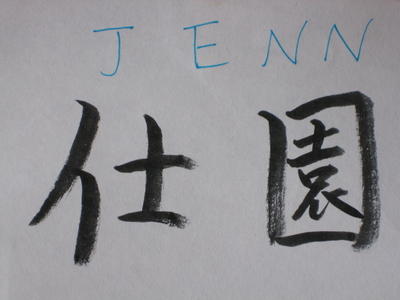 JENN
仕園